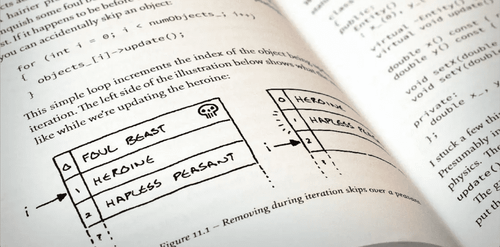 harder
nquish some foul
st. If it happens to be before
you can accidentally skip an object:
for (int i = 0; i < numObjects_; i++)
{
objects_[i]->update();
}
This simple loop increments the index of the object being
iteration. The left side of the illustration below shows what
like while we're updating the heroine:
0 FOUL BEAST
i 1 HEROINE
2 HAPLESS PEASANT
?
0 HEROINE
i 1 HAPLESS
2
Figure 11.1 – Removing during iteration skips over a peasant
public:
Entity()
virtual ~Entity()
virtual void update()
double x() const
double y() const
void setX(double
void setY(double
private:
double x_,
};
I stuck a few
Presumably
physics. The
update()
The
put th